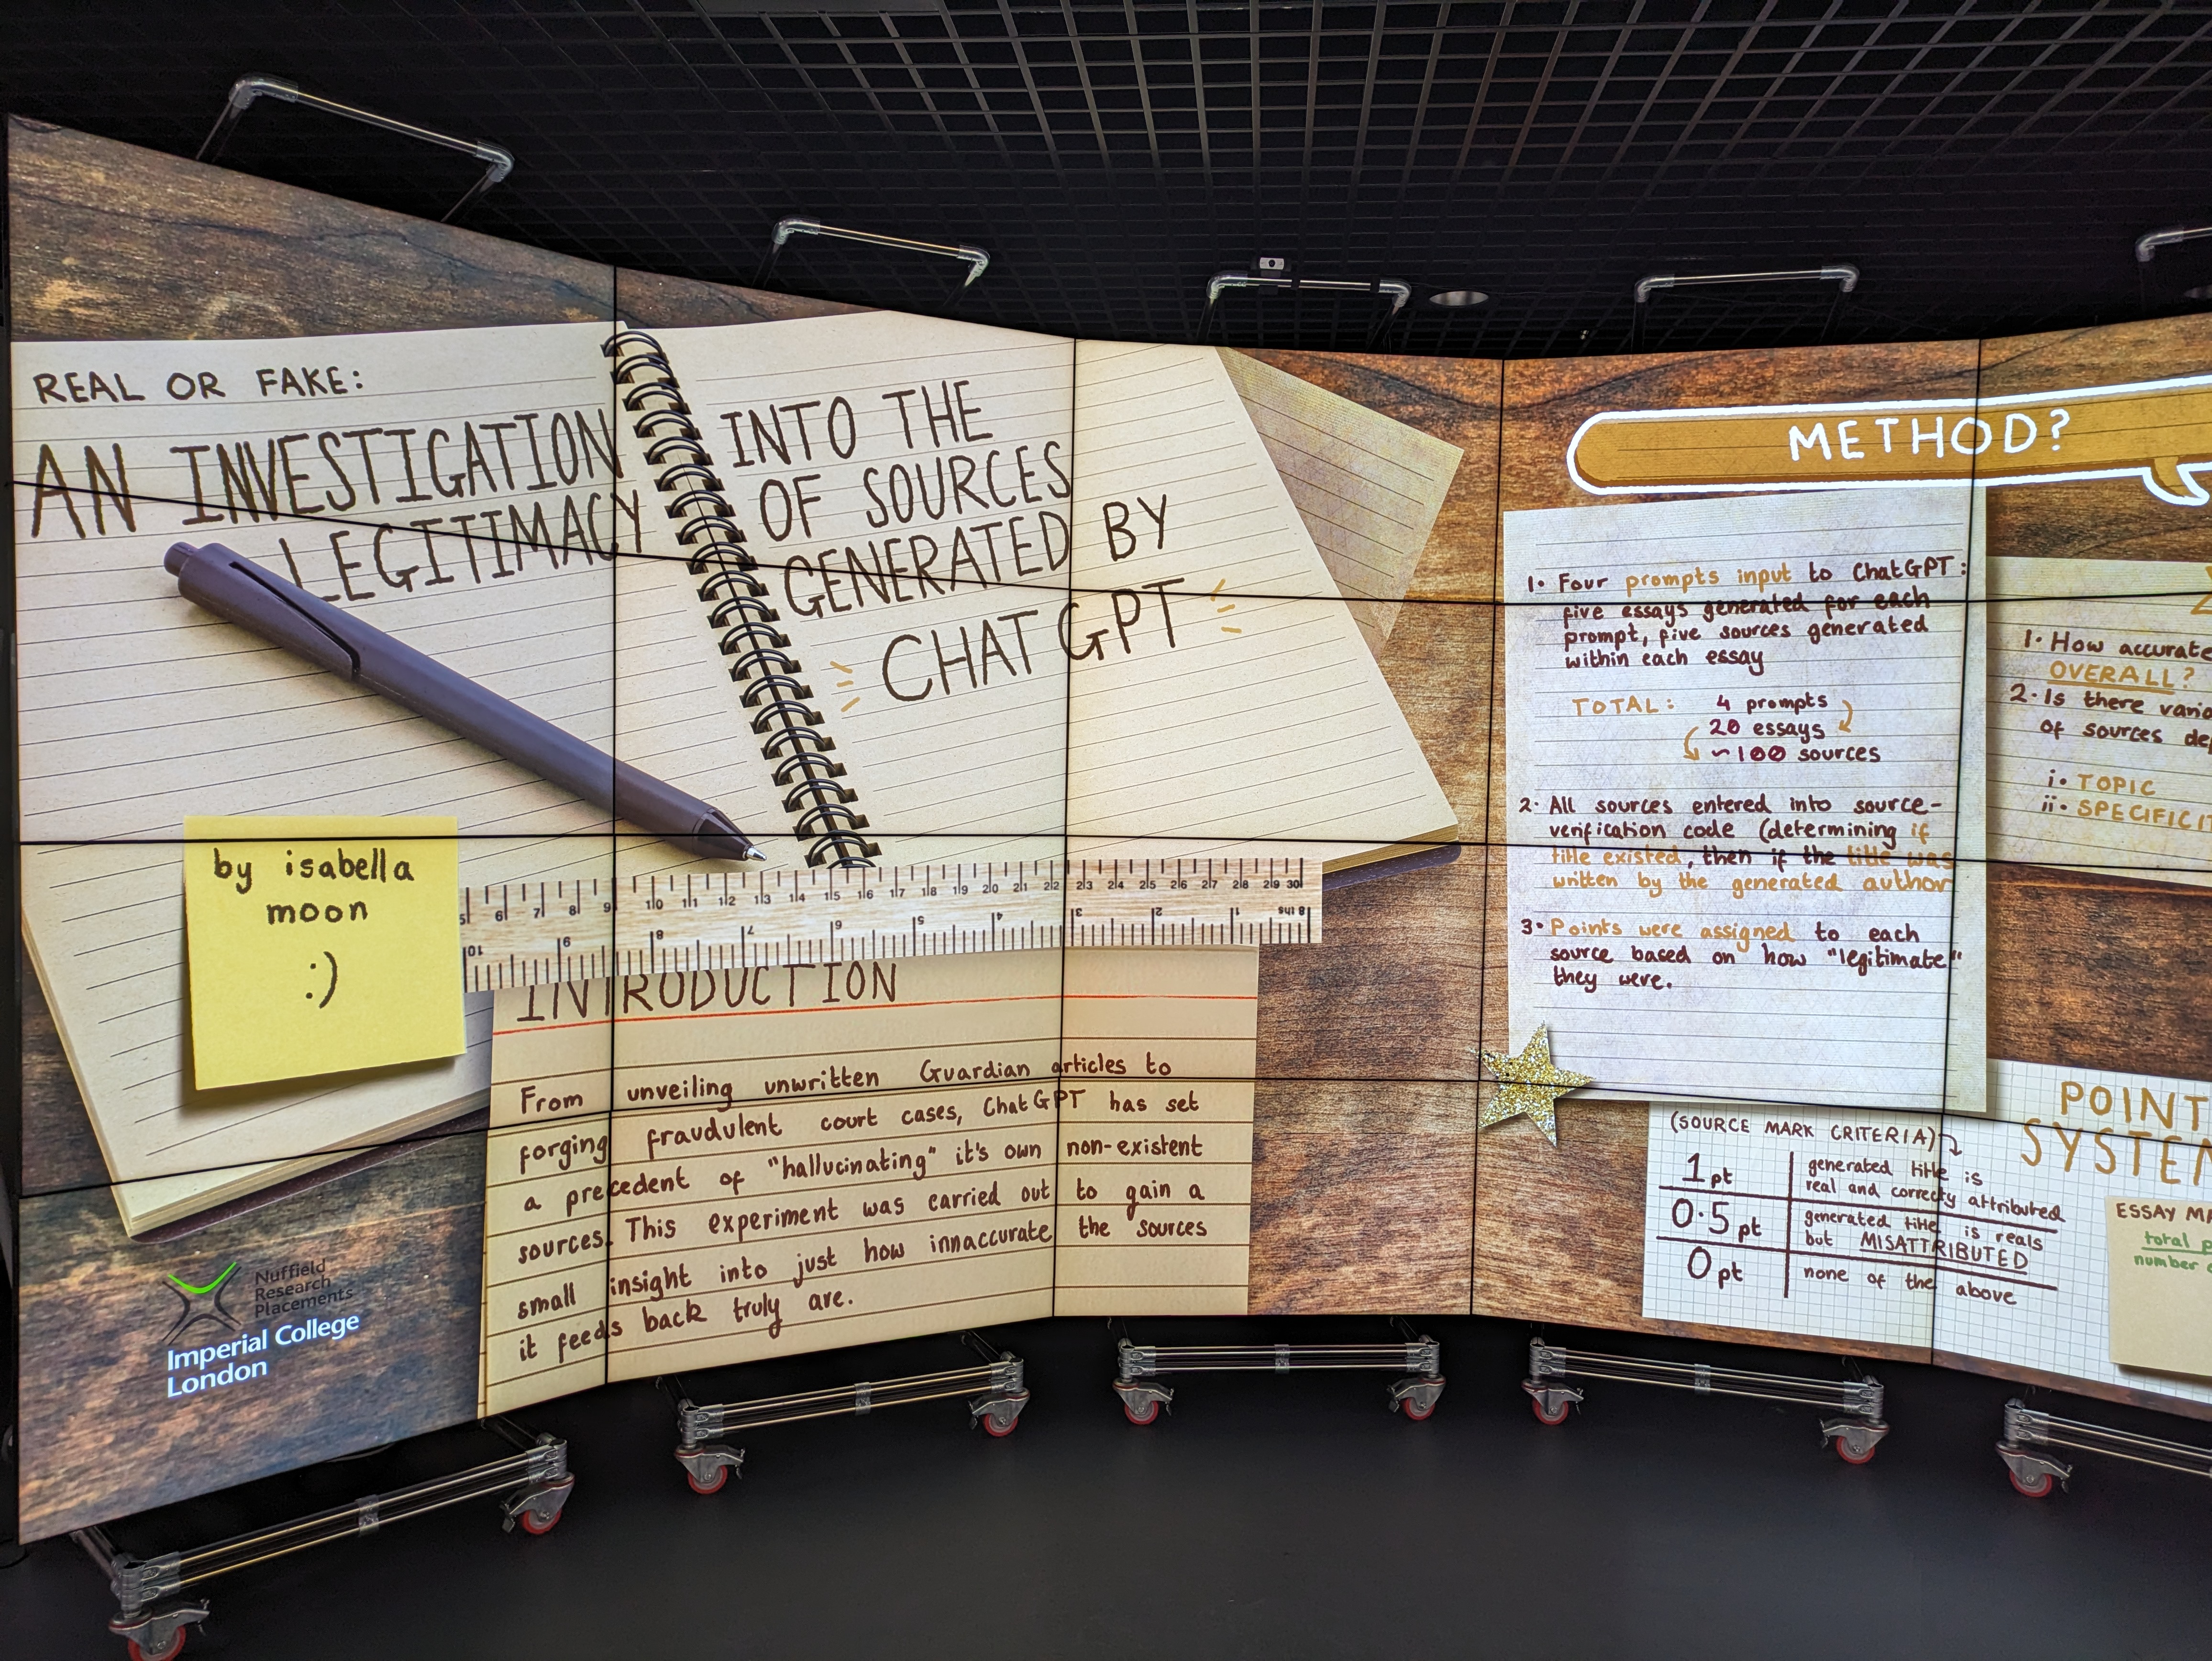 REAL OR FAKE:
AN INVESTIGATION INTO THE
LEGITIMACY OF SOURCES
GENERATED BY
CHATGPT
by isabella
moon
:)
5 6 7 8 9 10 11 12 13 14 15 16 17 18 19 20 21 22 23 24 25 26 27 28 29 30
10 9 8 7 6 5 4 3 2 1 8 ths
INTRODUCTION
From unveiling unwritten Guardian articles to
forging fraudulent court cases, ChatGPT has set
a precedent of "hallucinating" it's own non-existent
sources. This experiment was carried out to gain a
small insight into just how innaccurate the sources
it feeds back truly are.
Nuffield
Research
Placements
Imperial College
London
METHOD?
1. Four prompts input to ChatGPT:
five essays generated for each
prompt, five sources generated
within each essay
TOTAL: 4 prompts
20 essays
~100 sources
2. All sources entered into source-
verification code (determining if
title existed, then if the title was
written by the generated author
3. Points were assigned to each
source based on how "legitimate"
they were.
1. How accurate
OVERALL?
2. Is there
of sources
i. TOPIC
ii.
(SOURCE MARK CRITERIA)
1pt generated title is
real and correctly attributed
0.5pt generated title is reals
but MISATTRIBUTED
0pt none of the above
POINT
ESSAY
total
number